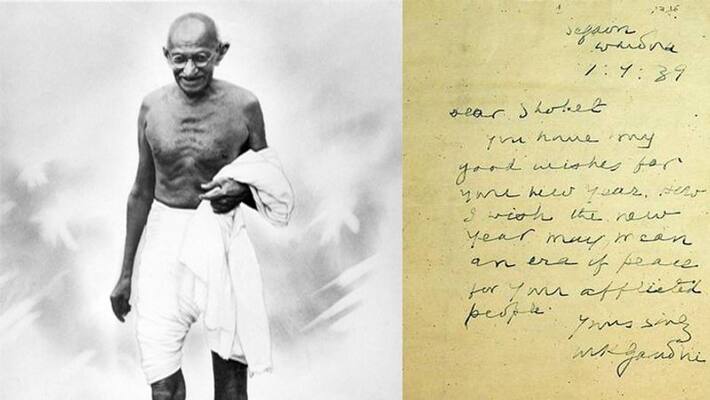 Segaon
Wardha
1:9:39
Dear Shohet
You have my
good wishes for
your new year. How
I wish the new
year may mean
an era of peace
for your afflicted
people.
Yours sincly
MKGandhi